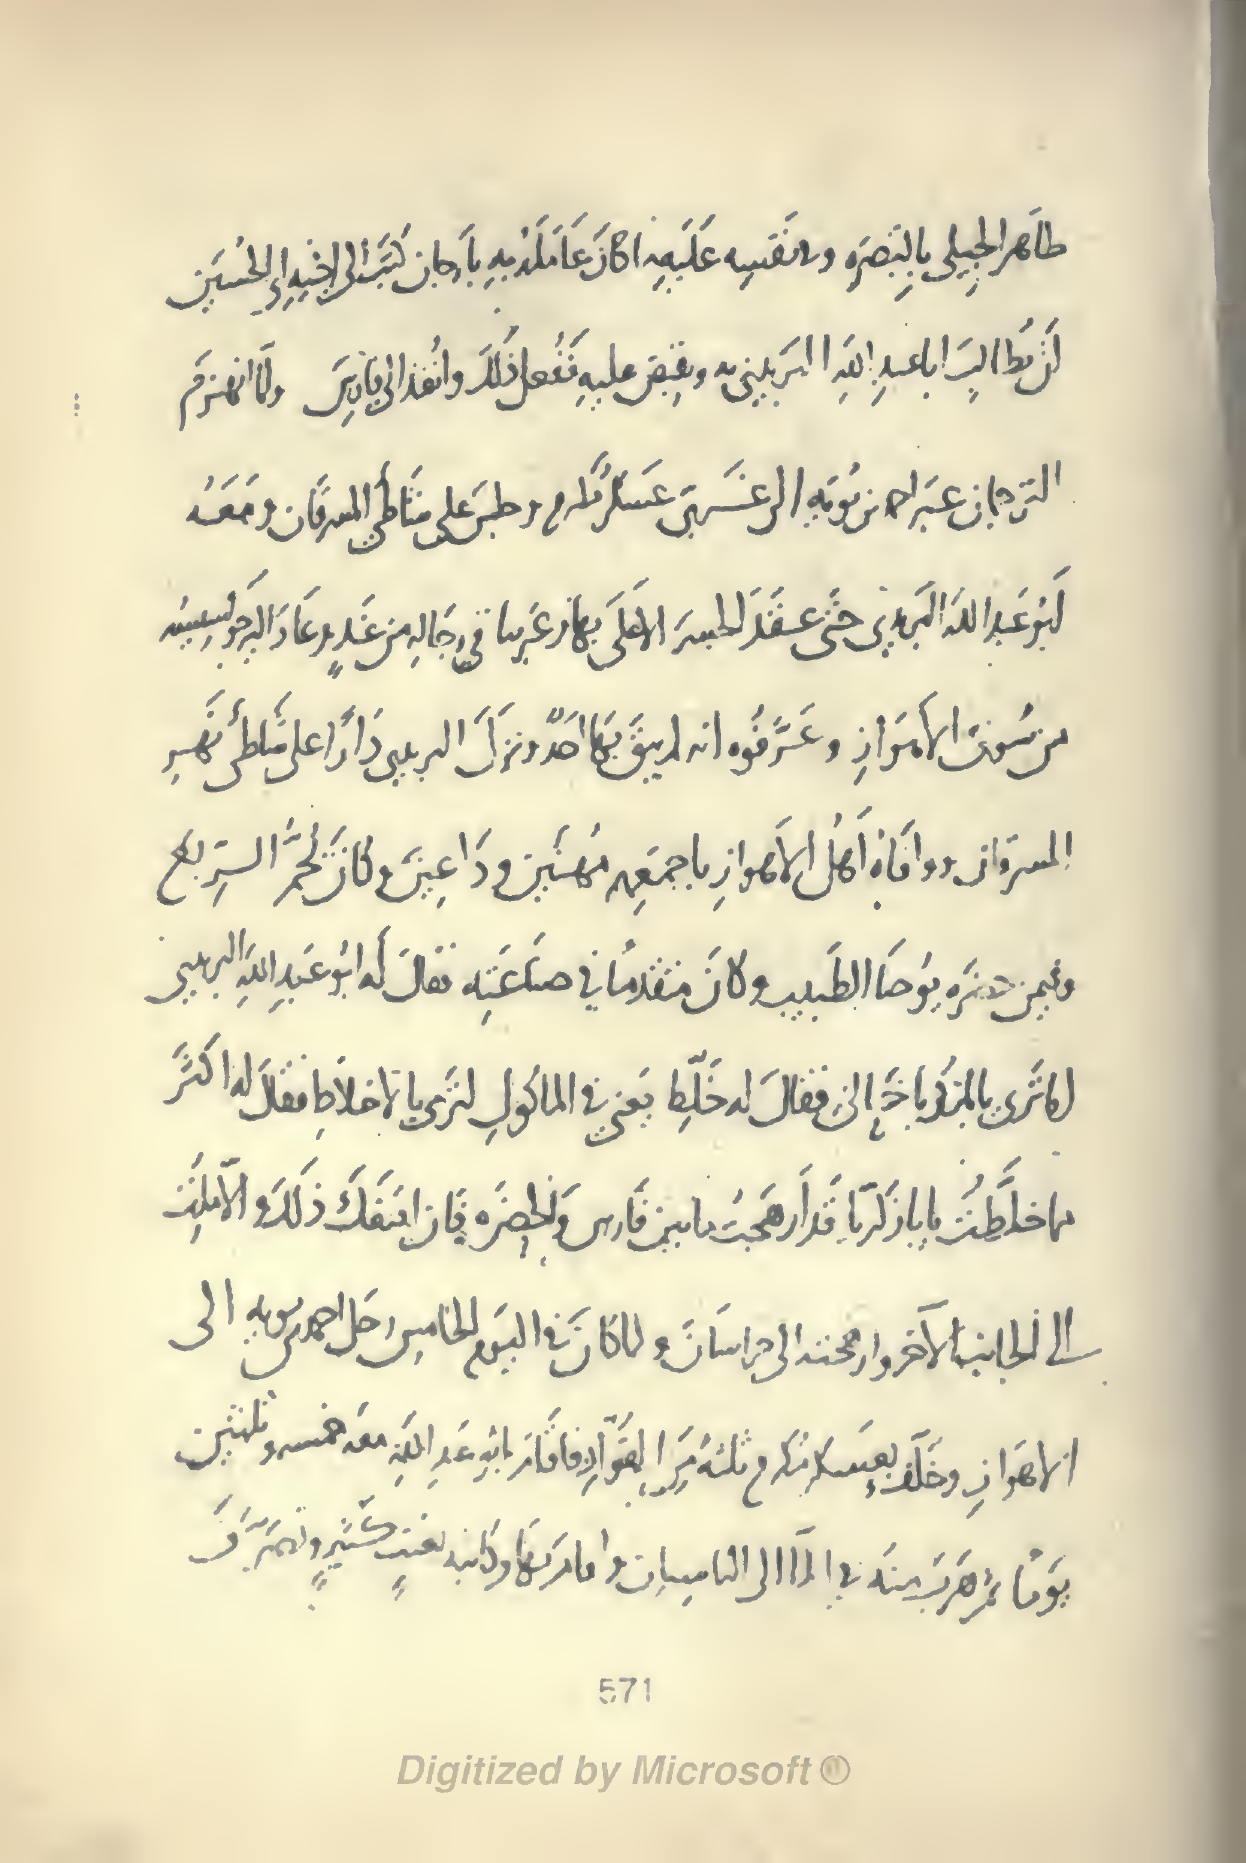 طاهر الجيلي بالبصرة وفي نفسه عليه ما كان عامله به بأرجان كتب الى اخيه ابي الحسين
ان يطالب ابا عبد الله البريدي به ويقبض عليه ففعل ذلك وانفذ الى فارس ولما انهزم
الترجمان عبر احمد بن بويه الى غربي عسكر مكرم وجلس على شاطئ المسرقان ومعه
ابو عبد الله البريدي حتى عقد الجسر الاعلى بها وعبرنا في رجاله من غد وعاد اليه جواسيسه
من سوق الاهواز وعرفوه انه لم يبق بها احد ونزل البريدي دارا على شاطئ نهر
المسرقان ووافاه أهل الاهواز باجمعهم مهنئين وداعين وكان يحم الربع
وفيمن حضره يوحنا الطبيب وكان متقدما في صناعته فقال له ابو عبد الله البريدي
اما ترى يا با زكريا فقال له خلط يعني في الماكول لترى بالاخلاط فقال له اكثر
مما خلطت يا با زكريا قد أرهجت ما بين فارس والحضرة فان اقنعك ذلك والا ملت
الى الجانب الآخر وارهجت الى خراسان ولما كان في اليوم الخامس رحل احمد بن بويه الى
الاهواز وخلف بعسكر مكرم ثلثة من القواد فاقام ابو عبد الله معه خمسه وثلثين
يوما ثم هرب منه في الماء الى الباسيان واقام بها وكاتبه بعتب كثير وتصرف
571
Digitized by Microsoft ®